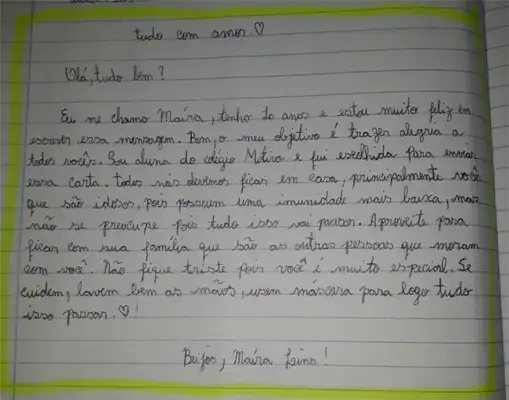 tudo com amor ♡
Olá, tudo bem?
Eu me chamo Maíra, tenho 10 anos e estou muito feliz em
escrever essa mensagem. Bom, o meu objetivo é trazer alegria a
todos vocês. Sou aluna do colégio Motivo e fui escolhida para enviar
essa carta. Todos nós devemos ficar em casa, principalmente você
que são idosos, pois possuem uma imunidade mais baixa, mas
não se preocupe pois tudo isso vai passar. Aproveite para
ficar com sua família que são as outras pessoas que moram
com você. Não fique triste pois você é muito especial. Se
cuidem, lavem bem as mãos, usem máscara para logo tudo
isso passar. ♡!
Beijos, Maíra Lins!